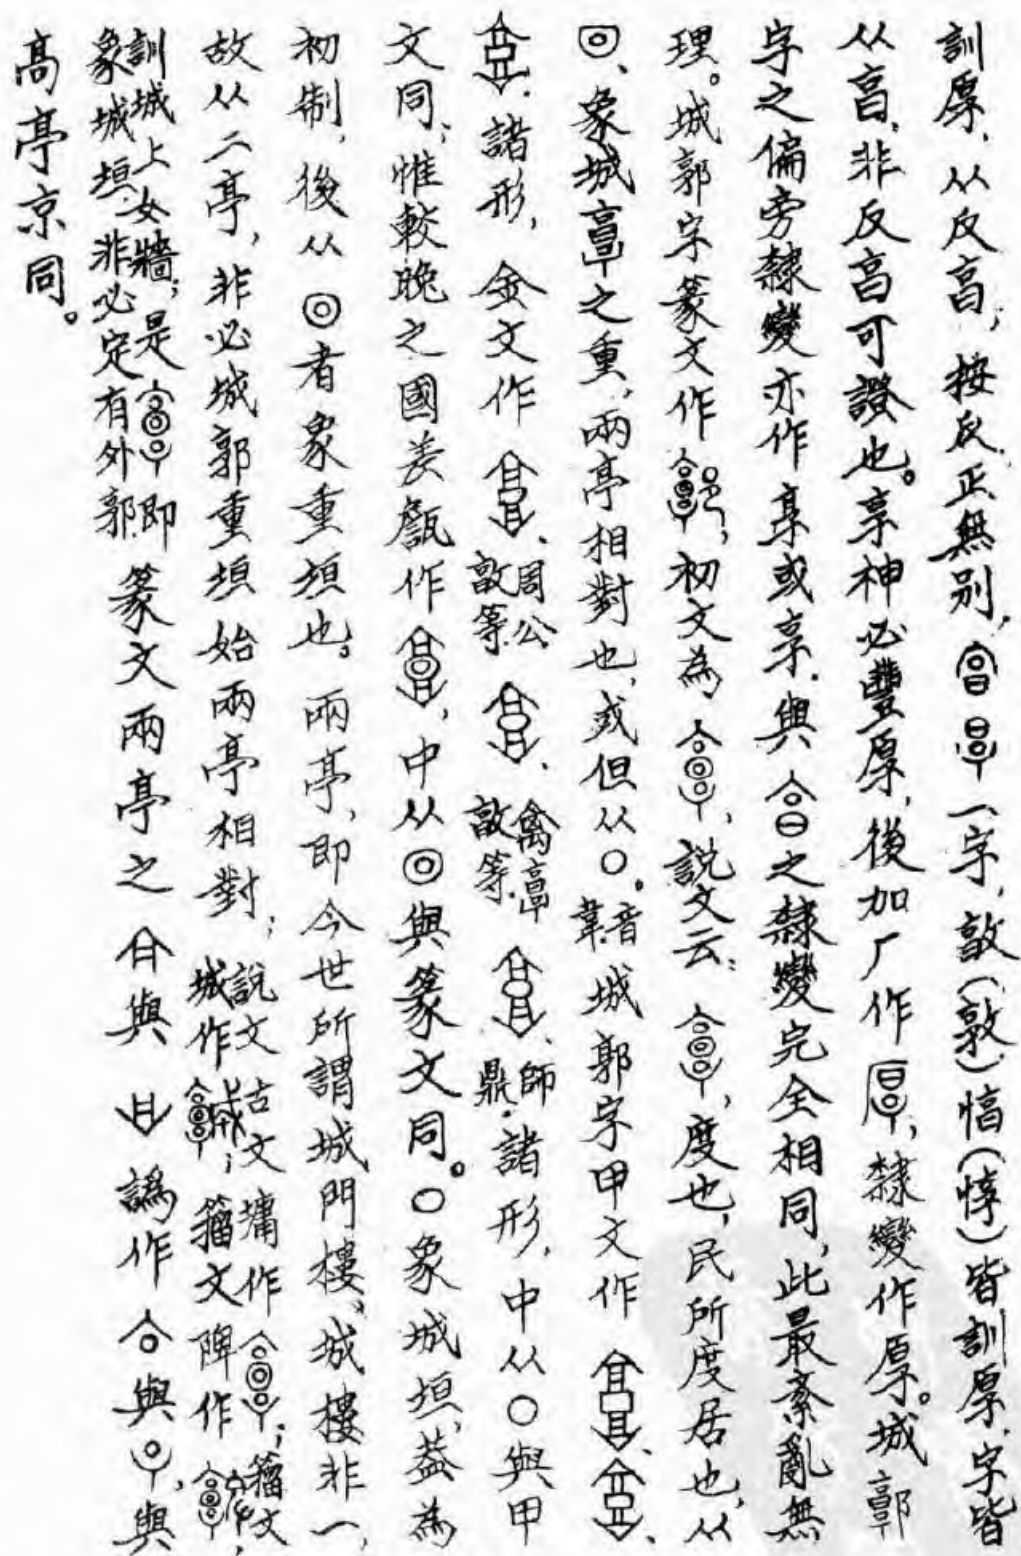 訓厚，从反亯；按反正無別，一字，敦（敦）惇（惇）皆訓厚，字皆
从亯，非反亯可證也。享神必豐厚，後加厂作，隸變作厚。城𩫏
字之偏旁隸變亦作享或享，與之隸變完全相同，此最紊亂無
理。城郭字篆文作，初文為，説文云：，度也，民所度居也，从
回，象城𩫏之重，兩亭相對也，或但从〇。音韋 城郭字甲文作、、
諸形，金文作、周公敦等、禽𩫏敦等、師鼎．諸形，中从〇與甲
文同；惟較晚之國差𦉜作，中从◎與篆文同。〇象城垣，葢為
初制，後从◎者象重垣也。兩亭，即今世所謂城門樓、城樓非一，
故从二亭，非必城郭重垣始兩亭相對；説文古文墉作；籀文城作；籀文陴作，
訓城上女牆；是即象城垣，非必定有外郭。篆文兩亭之與譌作與，與
高亭京同。